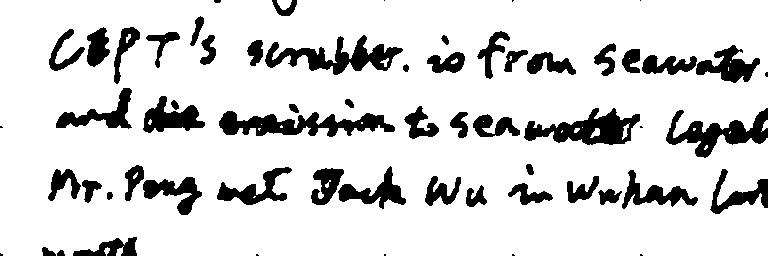 CEPT's scrubber. is from seawater.
and die emission to seawater legal
Mr. Pong met Jack Wu in Wuhan last
month